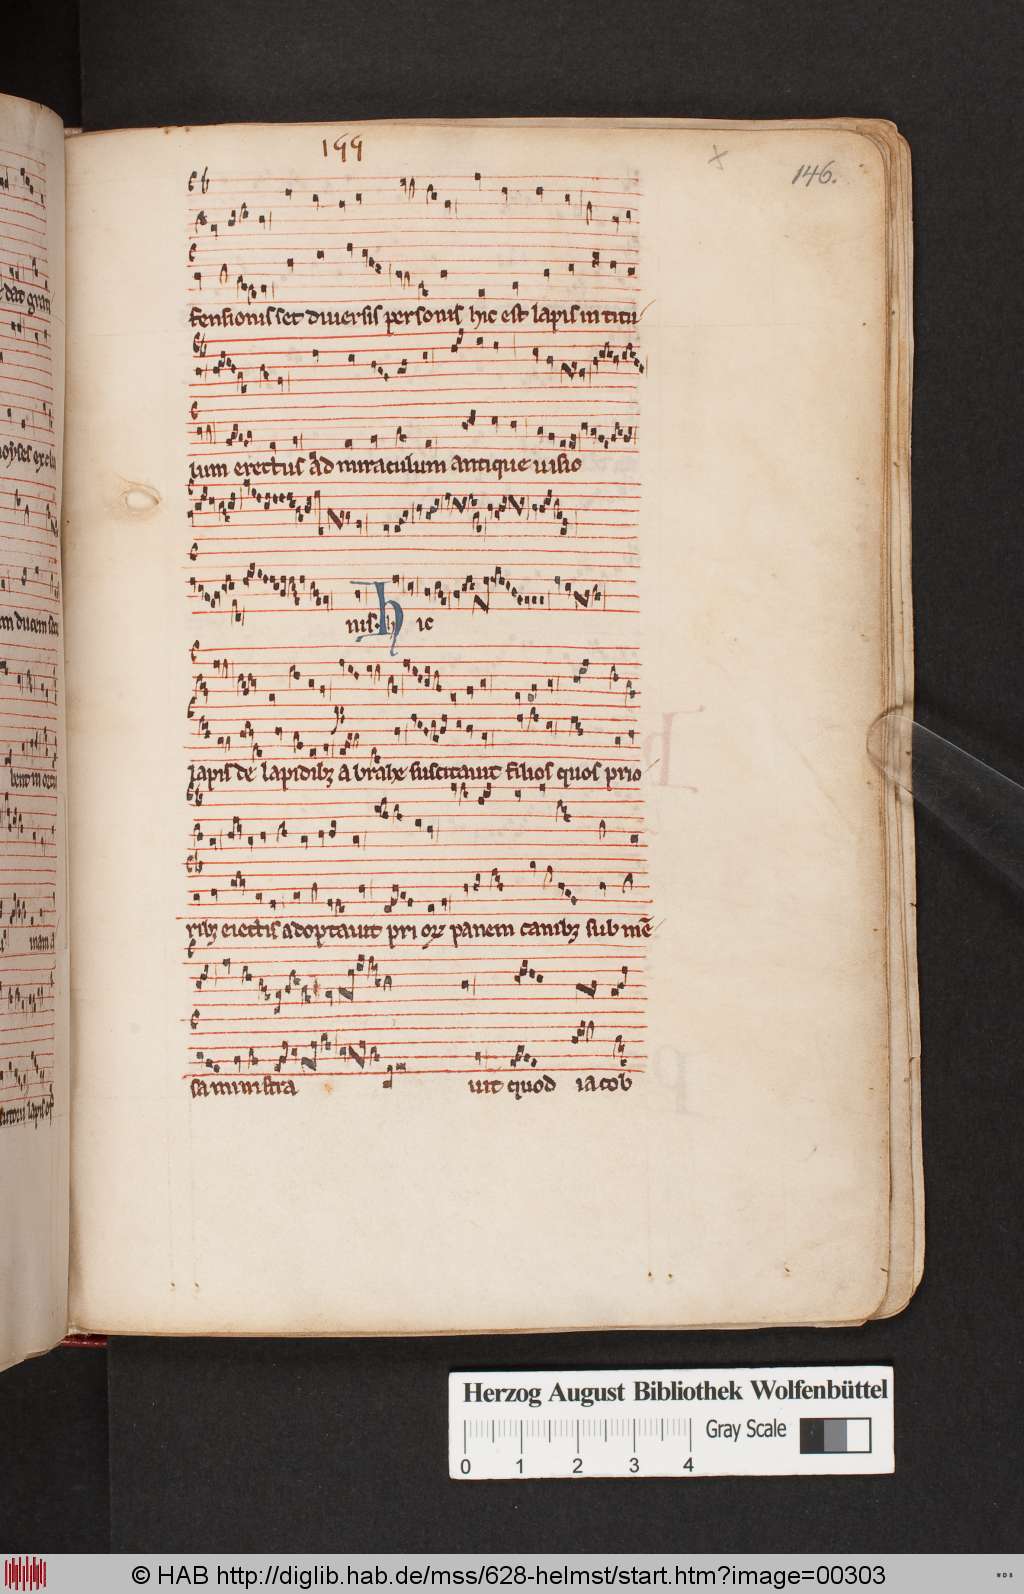 199
146.
tensionis set diversis personis hic est lapis in titu
lum erectus ad miraculum antique visio
nis. hic
lapis de lapidibʒ abrahe suscitavit filios quos prio
ribʒ eiectis adoptavit pri oꝝ panem canibʒ sub mē
sa ministra vit quod iacob
Herzog August Bibliothek Wolfenbüttel
Gray Scale
0 1 2 3 4
© HAB http://diglib.hab.de/mss/628-helmst/start.htm?image=00303